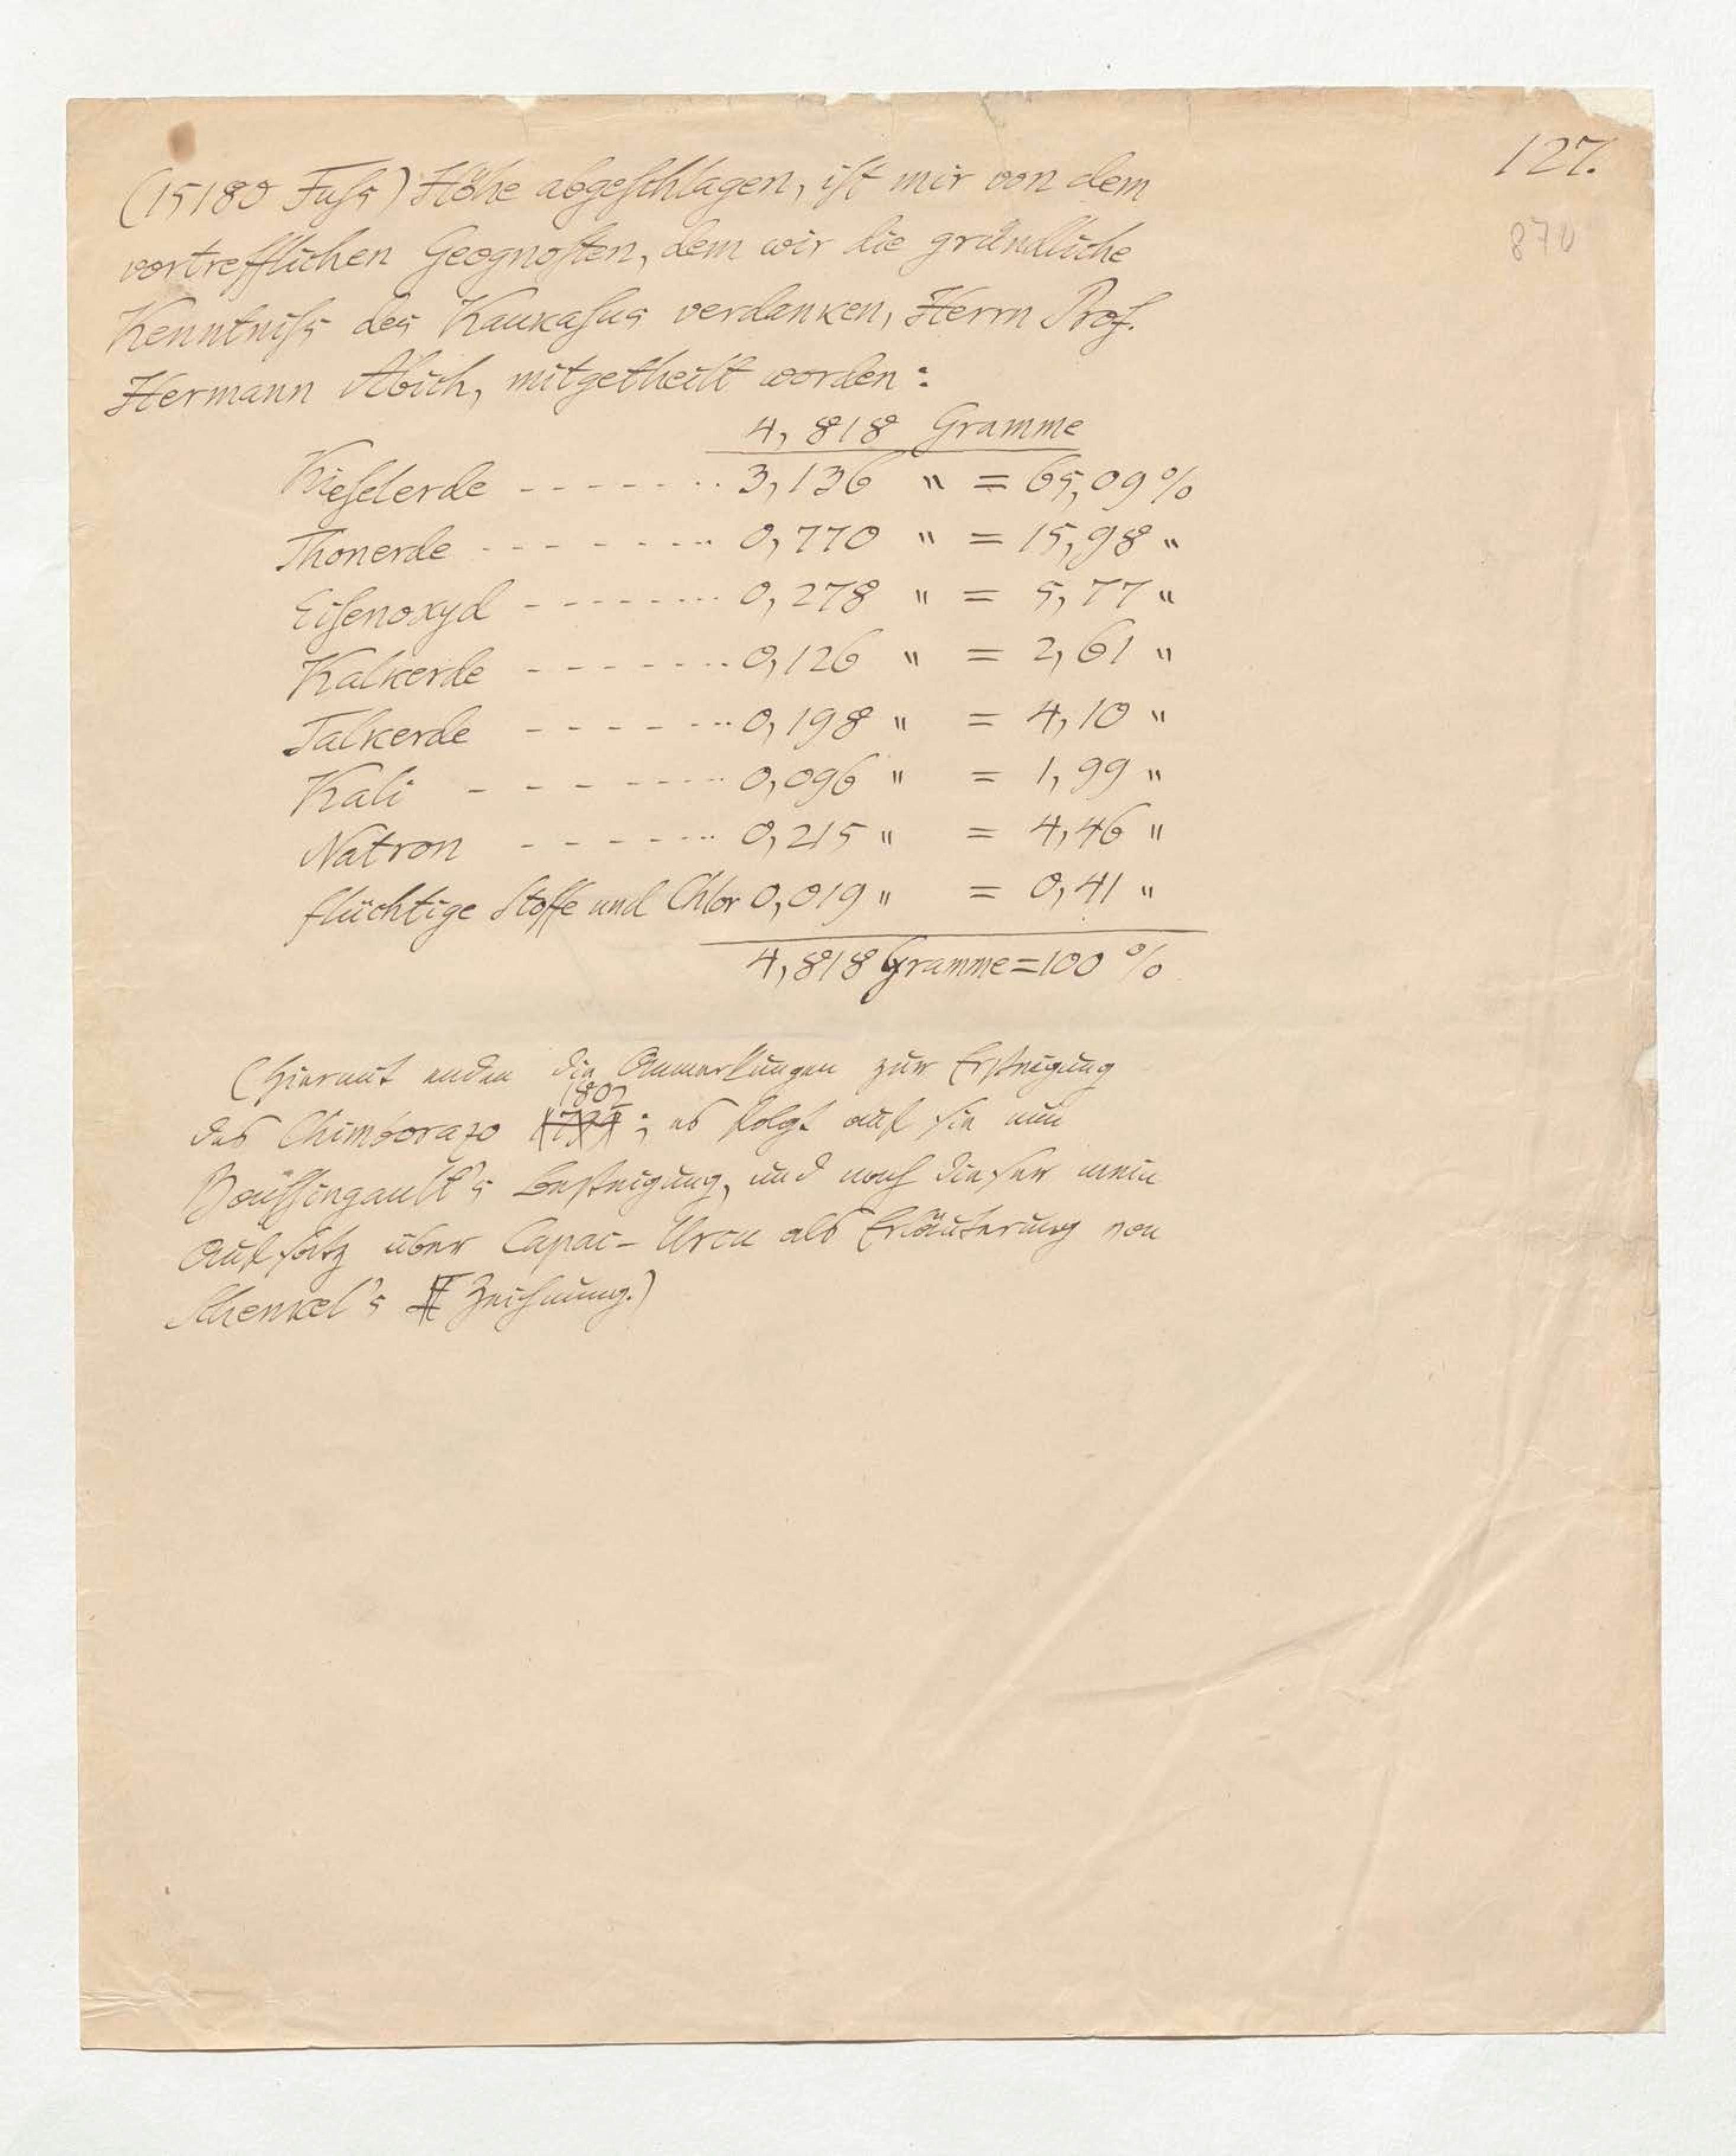 127.
870
(15180 Fuſs) Höhe abgeſchlagen, iſt mir von dem
vortrefflichen Geognoſten, dem wir die gründliche
Kenntniſs des Kaukaſus verdanken, Herrn Prof.
Hermann Abich, mitgetheilt worden:
4,818 Gramme
Kieſelerde - - - - - - - 3,136 " = 65,09 %
Thonerde - - - - - - - - 0,770 " = 15,98 "
Eiſenoxyd - - - - - - - - 0,278 " = 5,77 "
Kalkerde - - - - - - - - 0,126 " = 2,61 "
Talkerde - - - - - - - 0,198 " = 4,10 "
Kali - - - - - - - - 0,096 " = 1,99 "
Natron - - - - - - - 0,215 " = 4,46 "
flüchtige Stoffe und Chlor 0,019 " = 0,41 "
4,818 Gramme = 100 %
(Hiermit enden die Anmerkungen zur Erſteigung
1802
des Chimborazo ; es folgt auf ſie nun
Bouſſingault's Beſteigung, und nach dieſer mein
Aufſatz über Capac-Urcu als Erläuterung von
Schenkel's II Zeichnung.)